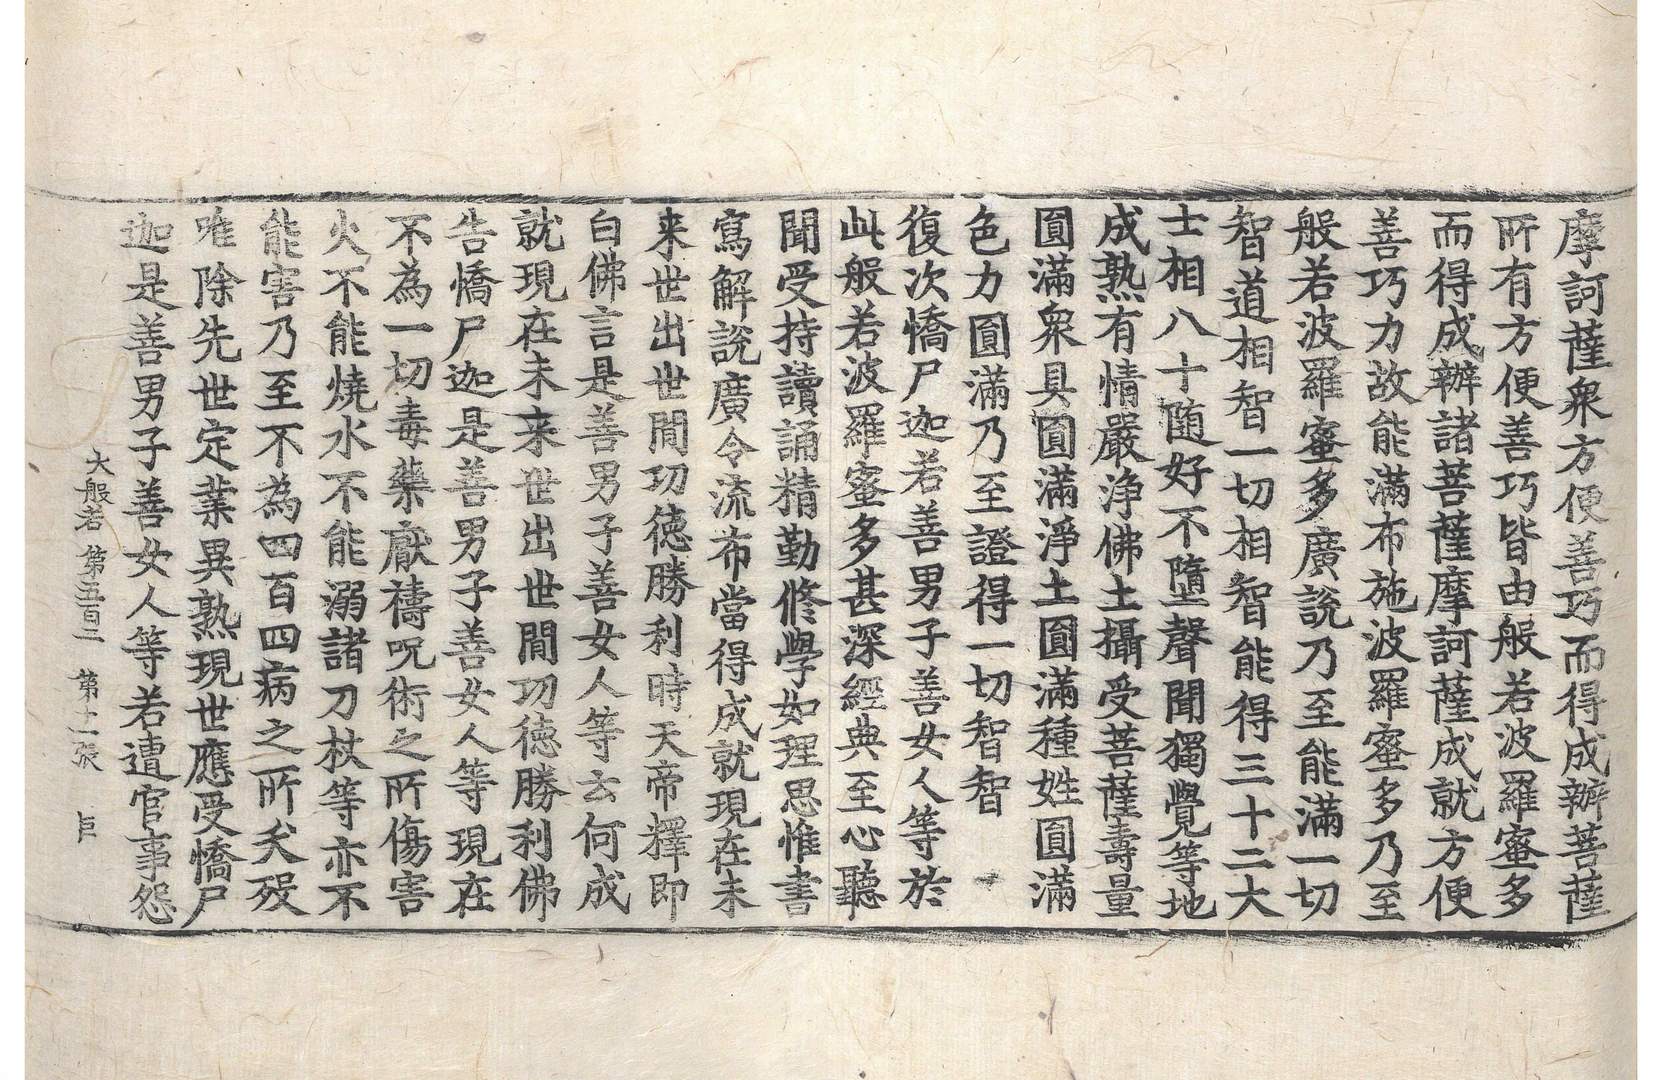 摩訶薩衆方便善巧而得成辦菩薩
所有方便善巧皆由般若波羅蜜多
而得成辦諸菩薩摩訶薩成就方便
善巧力故能滿布施波羅蜜多乃至
般若波羅蜜多廣說乃至能滿一切
智道相智一切相智能得三十二大
士相八十随好不墮聲聞獨覺等地
成熟有情嚴淨佛土攝受菩薩壽量
圓滿衆具圓滿淨土圓滿種姓圓滿
色力圓滿乃至證得一切智智
復次憍尸迦若善男子善女人等於
此般若波羅蜜多甚深經典至心聽
聞受持讀誦精勤修學如理思惟書
寫解說廣令流布當得成就現在未
来世出世間功德勝利時天帝釋即
白佛言是善男子善女人等云何成
就現在未来世出世間功德勝利佛
告憍尸迦是善男子善女人等現在
不為一切毒藥厭禱呪術之所傷害
火不能燒水不能溺諸刀杖等亦不
能害乃至不為四百四病之所夭歿
唯除先世定業異熟現世應受憍尸
迦是善男子善女人等若遭官事怨
大般若 第五百二 第十一張